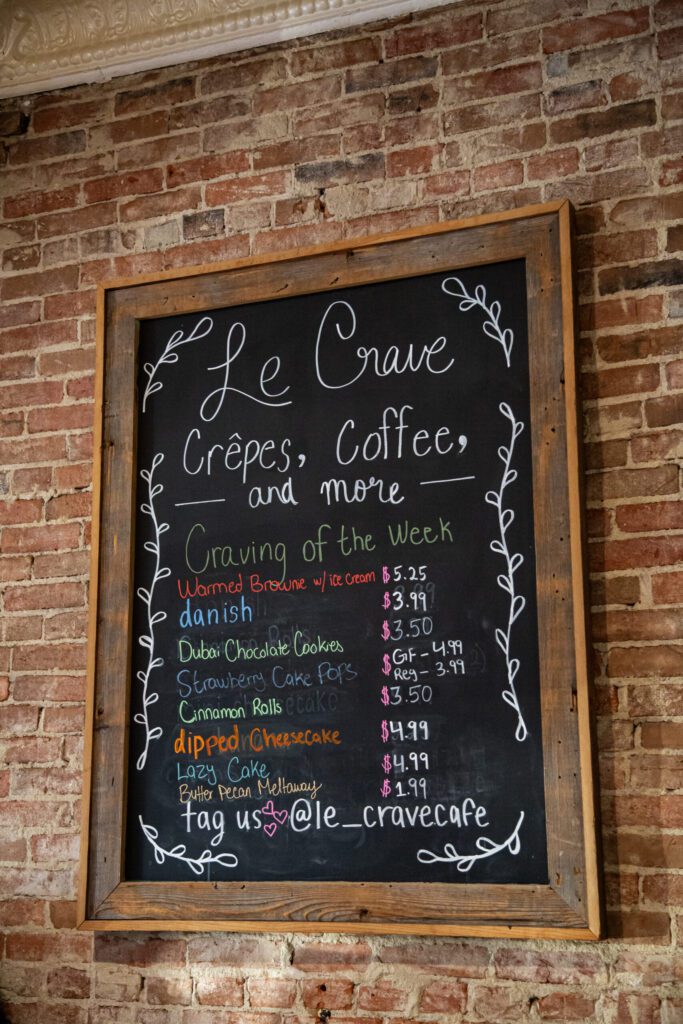 Le Crave
Crêpes, Coffee,
and more
Craving of the Week
Warmed Brownie w/ ice cream $5.25
danish $3.99
$3.50
Dubai Chocolate Cookies GF - 4.99
Strawberry Cake Pops $ Reg - 3.99
Cinnamon Rolls $3.50
dipped Cheesecake $4.99
Lazy Cake $4.99
Butter Pecan Meltaway $1.99
tag us @le_cravecafe